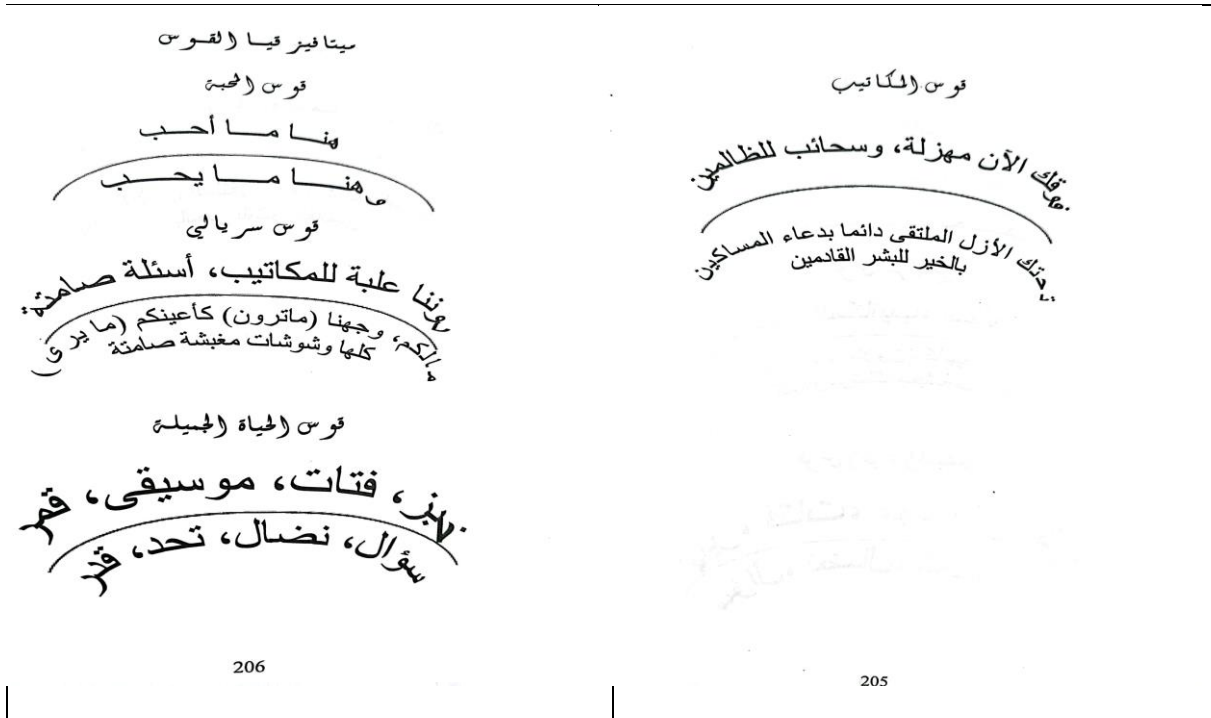 قوس المكاتيب
فوقك الآن مهزلة، وسحائب للظالمين
تحتك الأزل الملتقى دائما بدعاء المساكين
بالخير للبشر القادمين
205
ميتافيزقيا القوس
قوس المحبة
هنا ما أحب
وهنا ما يحب
قوس سريالي
علبة للمكاتيب، أسئلة صامتة
مالكم، وجهنا (ماترون) كأعينكم (ما يرى)
كلها وشوشات مغبشة صامتة
قوس الحياة الجميلة
خبز، فتات، موسيقى، قمر
سؤال، نضال، تحد، قدر
206